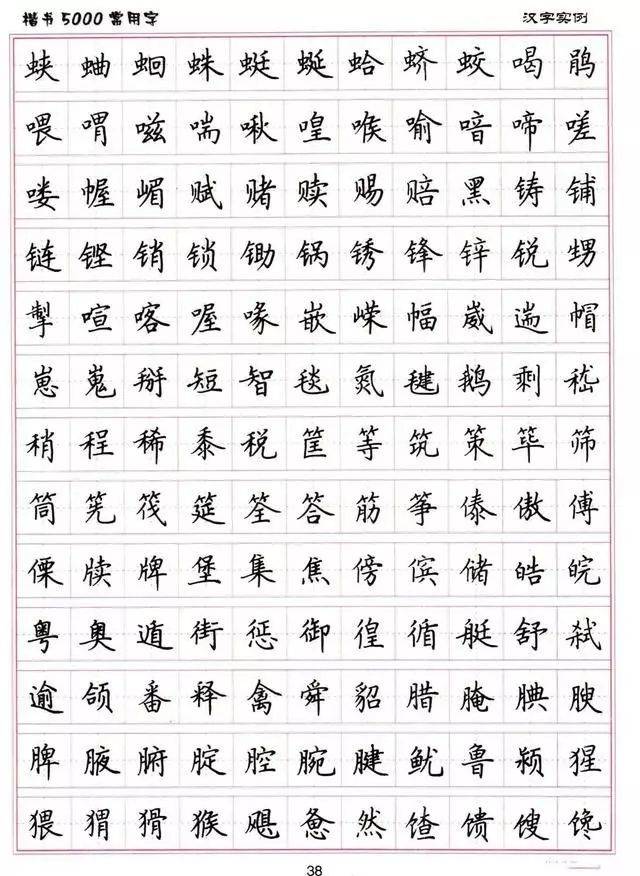 楷书5000常用字 汉字实例
蛱 蛐 蛔 蛛 蜓 蜒 蛤 蛴 蛟 喝 鹃
喂 喟 嗞 喘 啾 喤 喉 喻 喑 啼 嗟
喽 幄 嵋 赋 赌 赎 赐 赔 黑 铸 铺
链 铿 销 锁 锄 锅 锈 锋 锌 锐 甥
掣 喧 喀 喔 喙 嵌 嵘 幅 崴 遄 帽
崽 嵬 掰 短 智 毯 氮 毽 鹅 剩 嵇
稍 程 稀 黍 税 筐 等 筑 策 筚 筛
筒 筅 筏 筵 筌 答 筋 筝 傣 傲 傅
傈 牍 牌 堡 集 焦 傍 傧 储 皓 皖
粤 奥 遁 街 惩 御 徨 循 艇 舒 弑
逾 颌 番 释 禽 舜 貂 腊 腌 腆 腴
脾 腋 腑 腚 腔 腕 腱 鱿 鲁 颍 猩
猥 猬 猾 猴 飓 惫 然 馇 馈 馊 馋
38